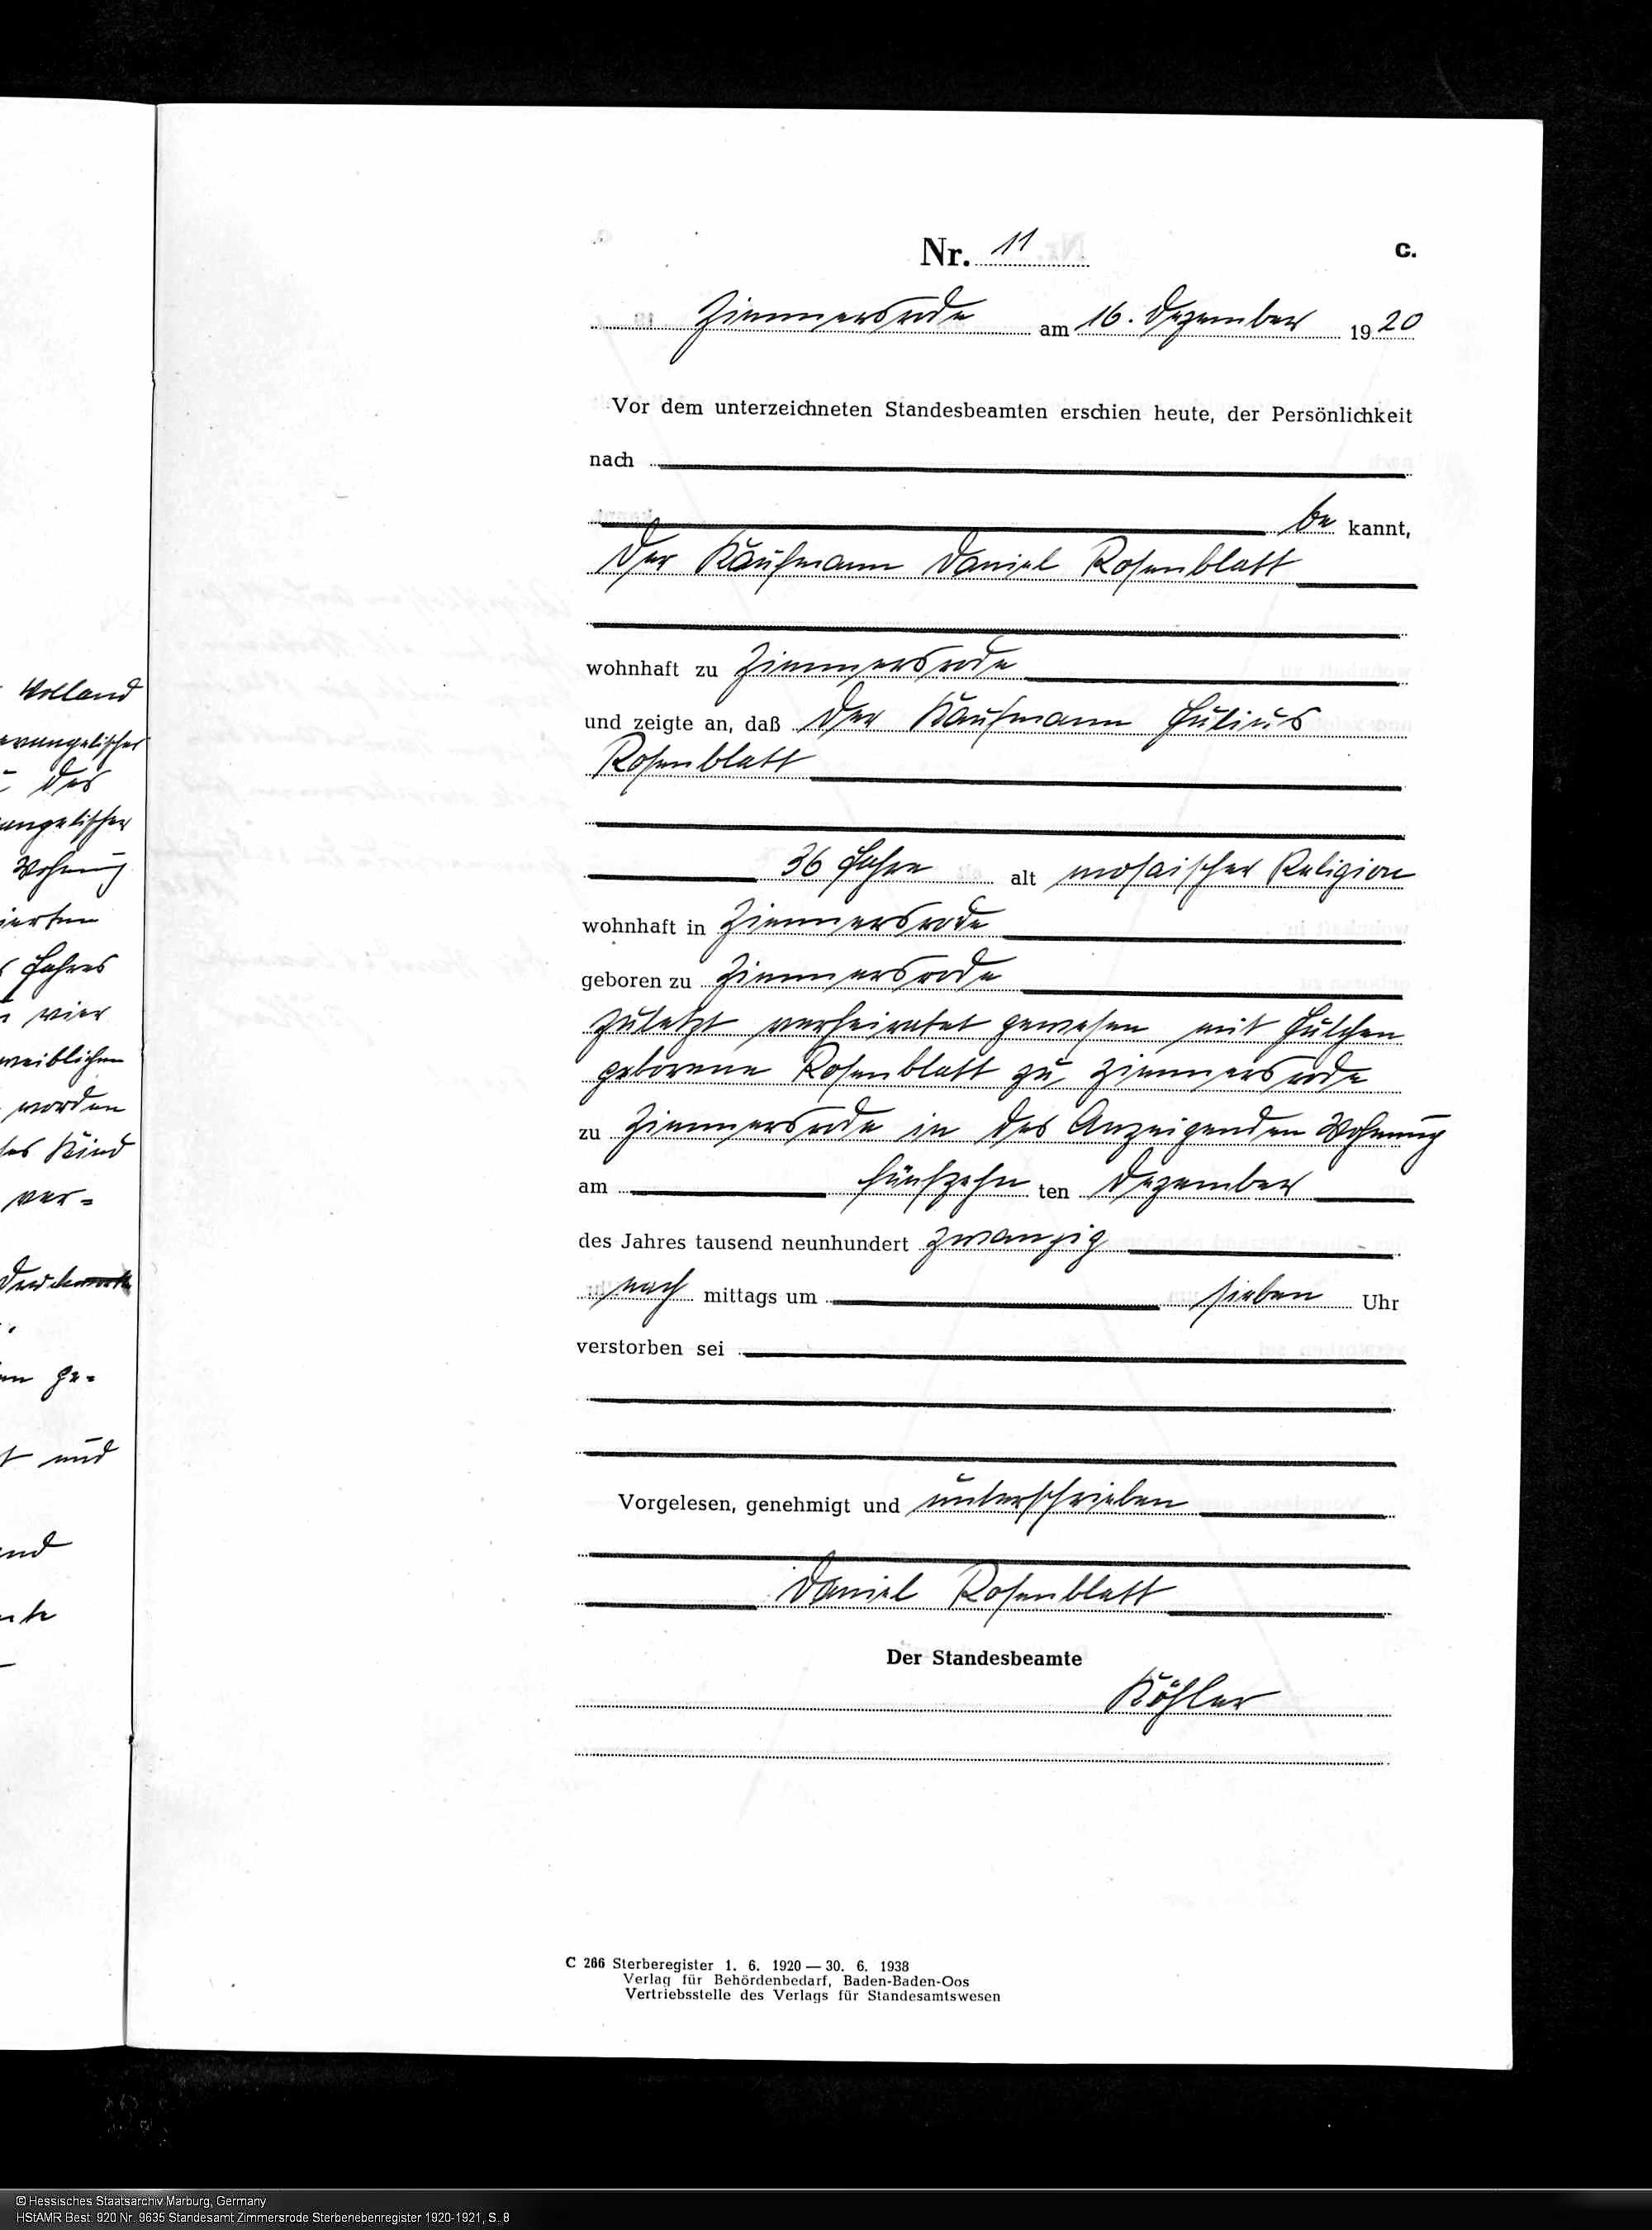 Nr. 11
C.
Zimmersrode am 16. Dezember 1920
Vor dem unterzeichneten Standesbeamten erschien heute, der Persönlichkeit
nach
be kannt,
der Kaufmann Daniel Rosenblatt
wohnhaft zu Zimmersrode
und zeigte an, daß der Kaufmann Julius
Rosenblatt
36 Jahre alt mosaischer Religion
wohnhaft in Zimmersrode
geboren zu Zimmersrode
zuletzt verheiratet gewesen mit Julchen
geborene Rosenblatt zu Zimmersrode
zu Zimmersrode in des Anzeigenden Wohnung
am fünfzehn ten Dezember
des Jahres tausend neunhundert zwanzig
nach mittags um sieben Uhr
verstorben sei
Vorgelesen, genehmigt und unterschrieben
Daniel Rosenblatt
Der Standesbeamte
Köhler
C 266 Sterberegister 1. 6. 1920 — 30. 6. 1938
Verlag für Behördenbedarf, Baden-Baden-Oos
Vertriebsstelle des Verlags für Standesamtswesen
Volland
evangelischer
des
Wohnung
Jahres
vier
weiblichen
worden
Kind
ver=
ge=
und
© Hessisches Staatsarchiv Marburg, Germany
HStAMR Best. 920 Nr. 9635 Standesamt Zimmersrode Sterbenebenregister 1920-1921, S. 8